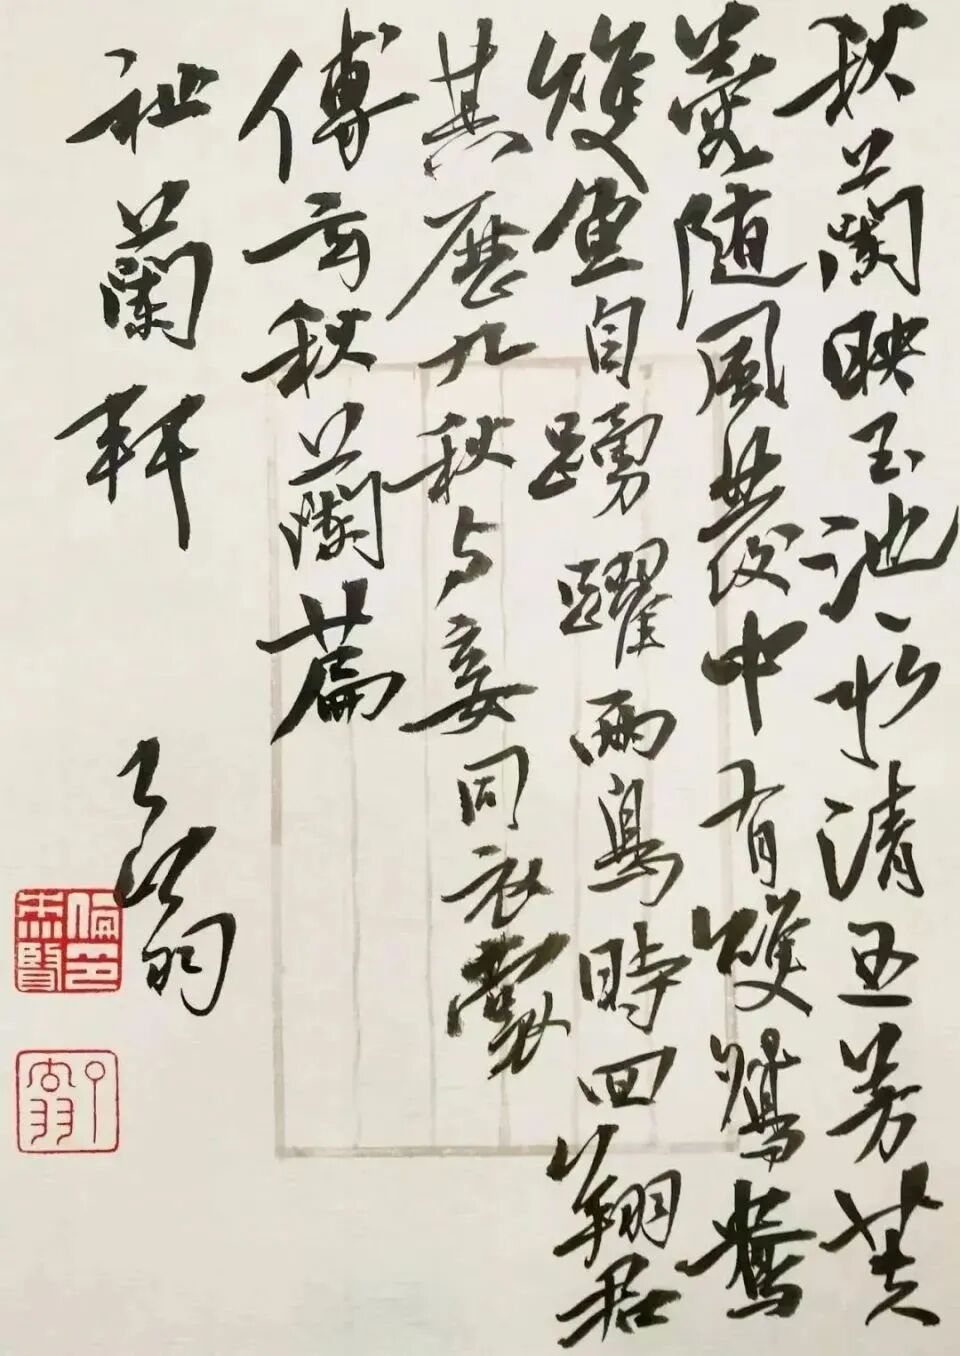 秋蘭映玉池〻水清且芳芙
蓉随風發中有雙鴛鴦
雙魚自踴躍兩鳥時回翔君
其歷九秋与妾同衣裳
傅玄秋蘭篇
祉蘭軒
了翁
了翁